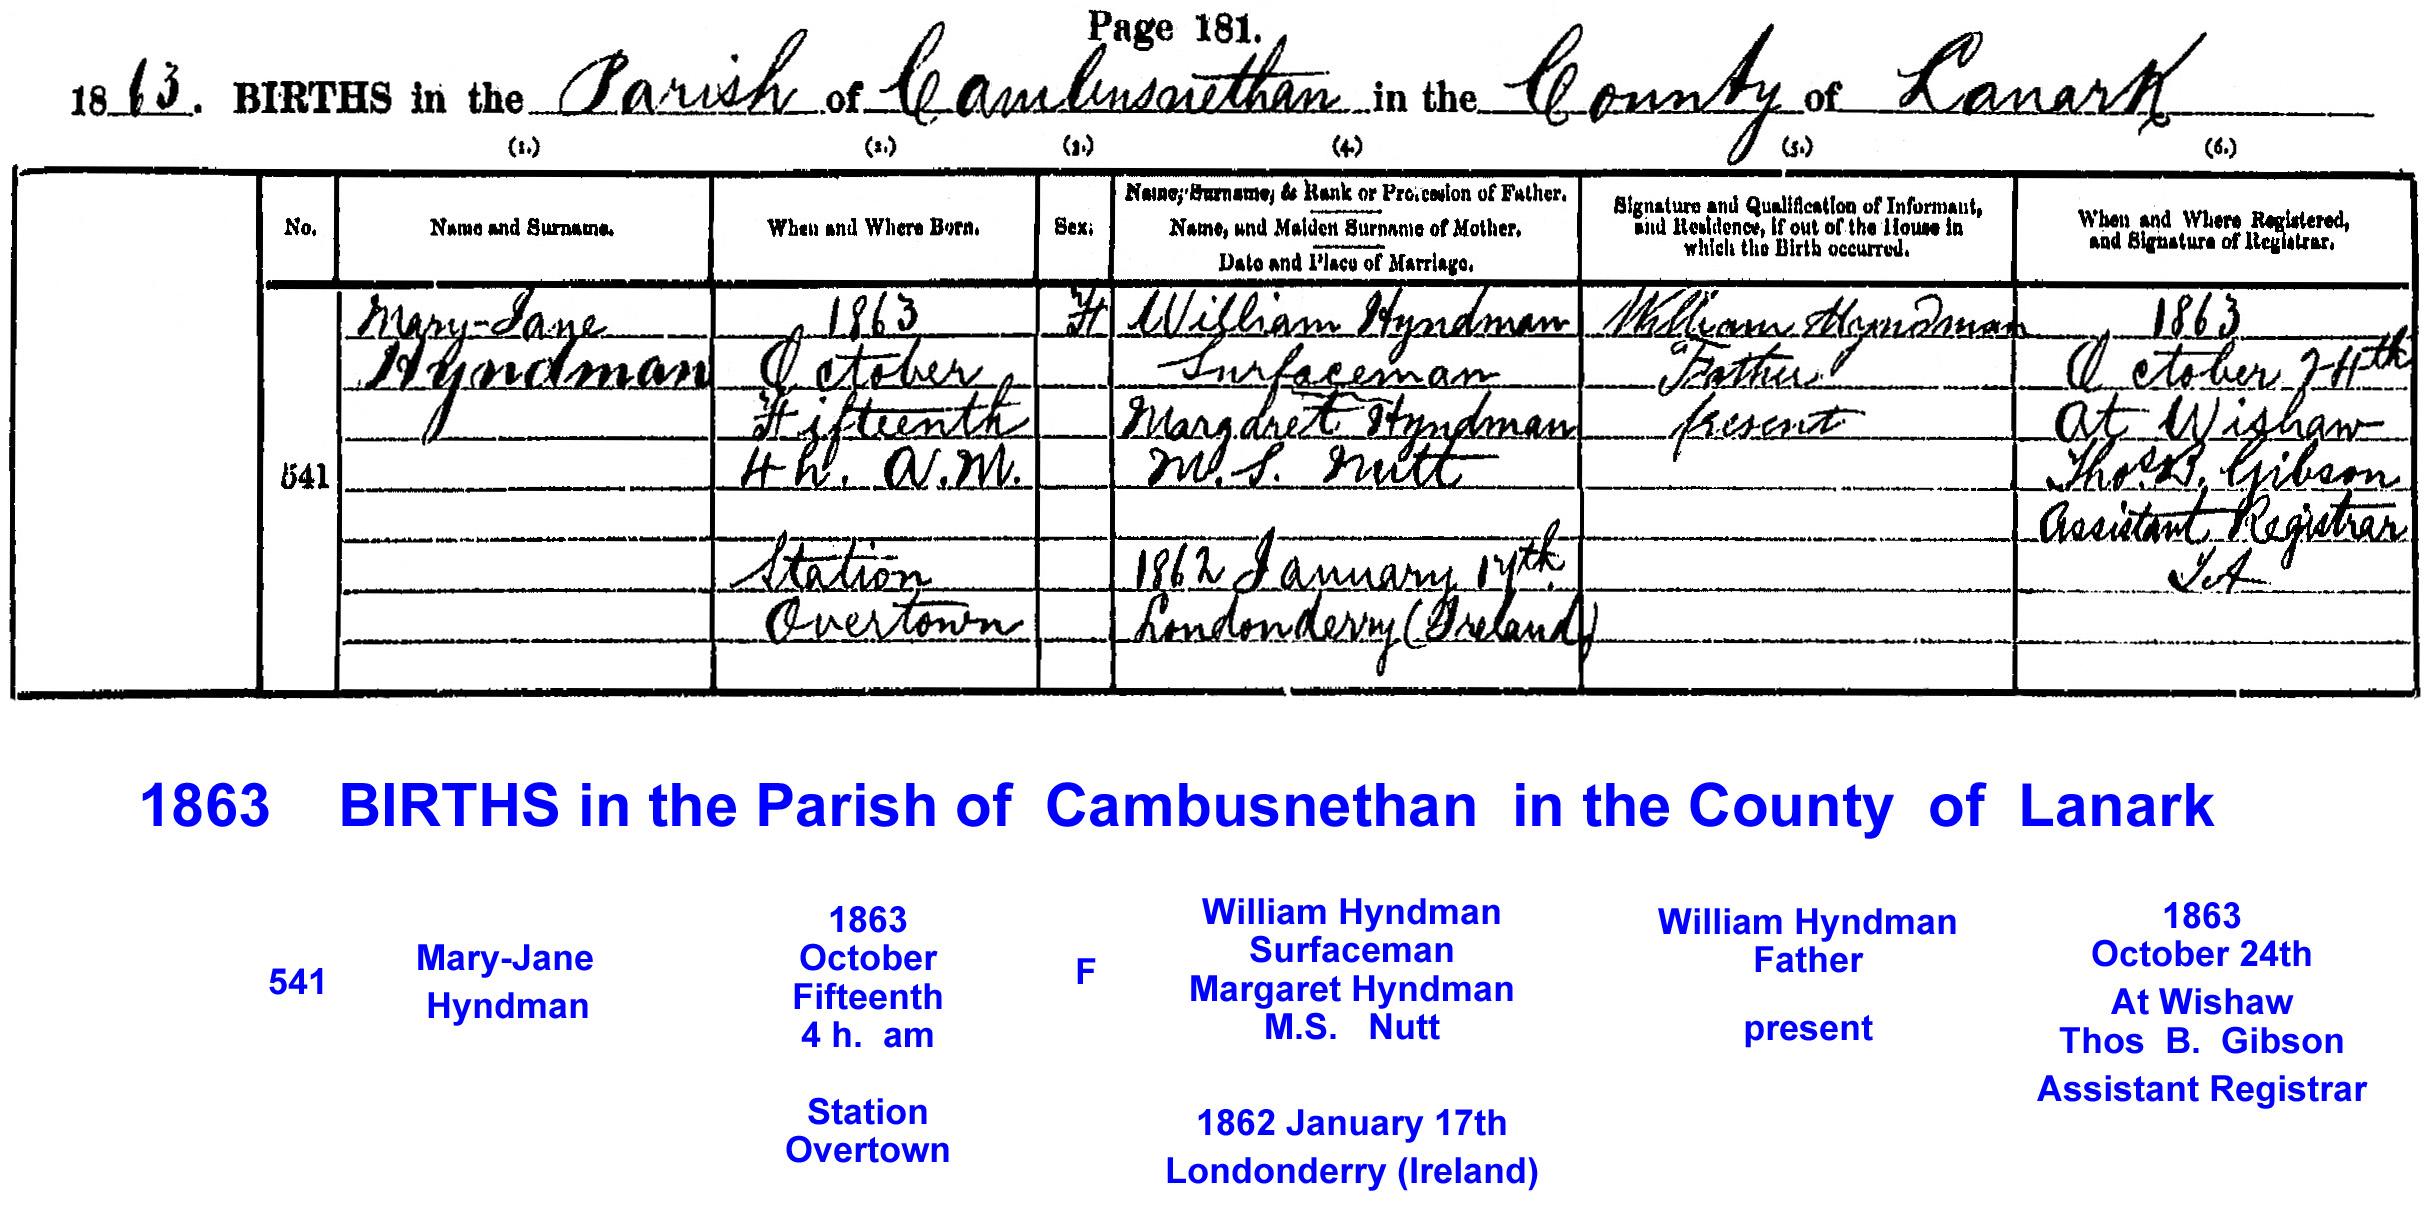 Page 181.
1863. BIRTHS in the Parish of Cambusnethan in the County of Lanark
(1.) (2.) (3.) (4.) (5.) (6.)
No.
Name and Surname.
When and Where Born.
Sex.
Name, Surname, & Rank or Profession of Father.
Name, and Maiden Surname of Mother.
Date and Place of Marriage.
Signature and Qualification of Informant,
and Residence, if out of the House in
which the Birth occurred.
When and Where Registered,
and Signature of Registrar.
541
Mary-Jane
Hyndman
1863
October
Fifteenth
4 h. A.M.
Station
Overtown
F
William Hyndman
Surfaceman
Margaret Hyndman
M.S. Nutt
1862 January 17th
Londonderry (Ireland)
William Hyndman
Father
present
1863
October 24th
At Wishaw
Thos. B. Gibson
Assistant Registrar
1863 BIRTHS in the Parish of Cambusnethan in the County of Lanark
541
Mary-Jane
Hyndman
1863
October
Fifteenth
4 h. am
Station
Overtown
F
William Hyndman
Surfaceman
Margaret Hyndman
M.S. Nutt
1862 January 17th
Londonderry (Ireland)
William Hyndman
Father
present
1863
October 24th
At Wishaw
Thos B. Gibson
Assistant Registrar